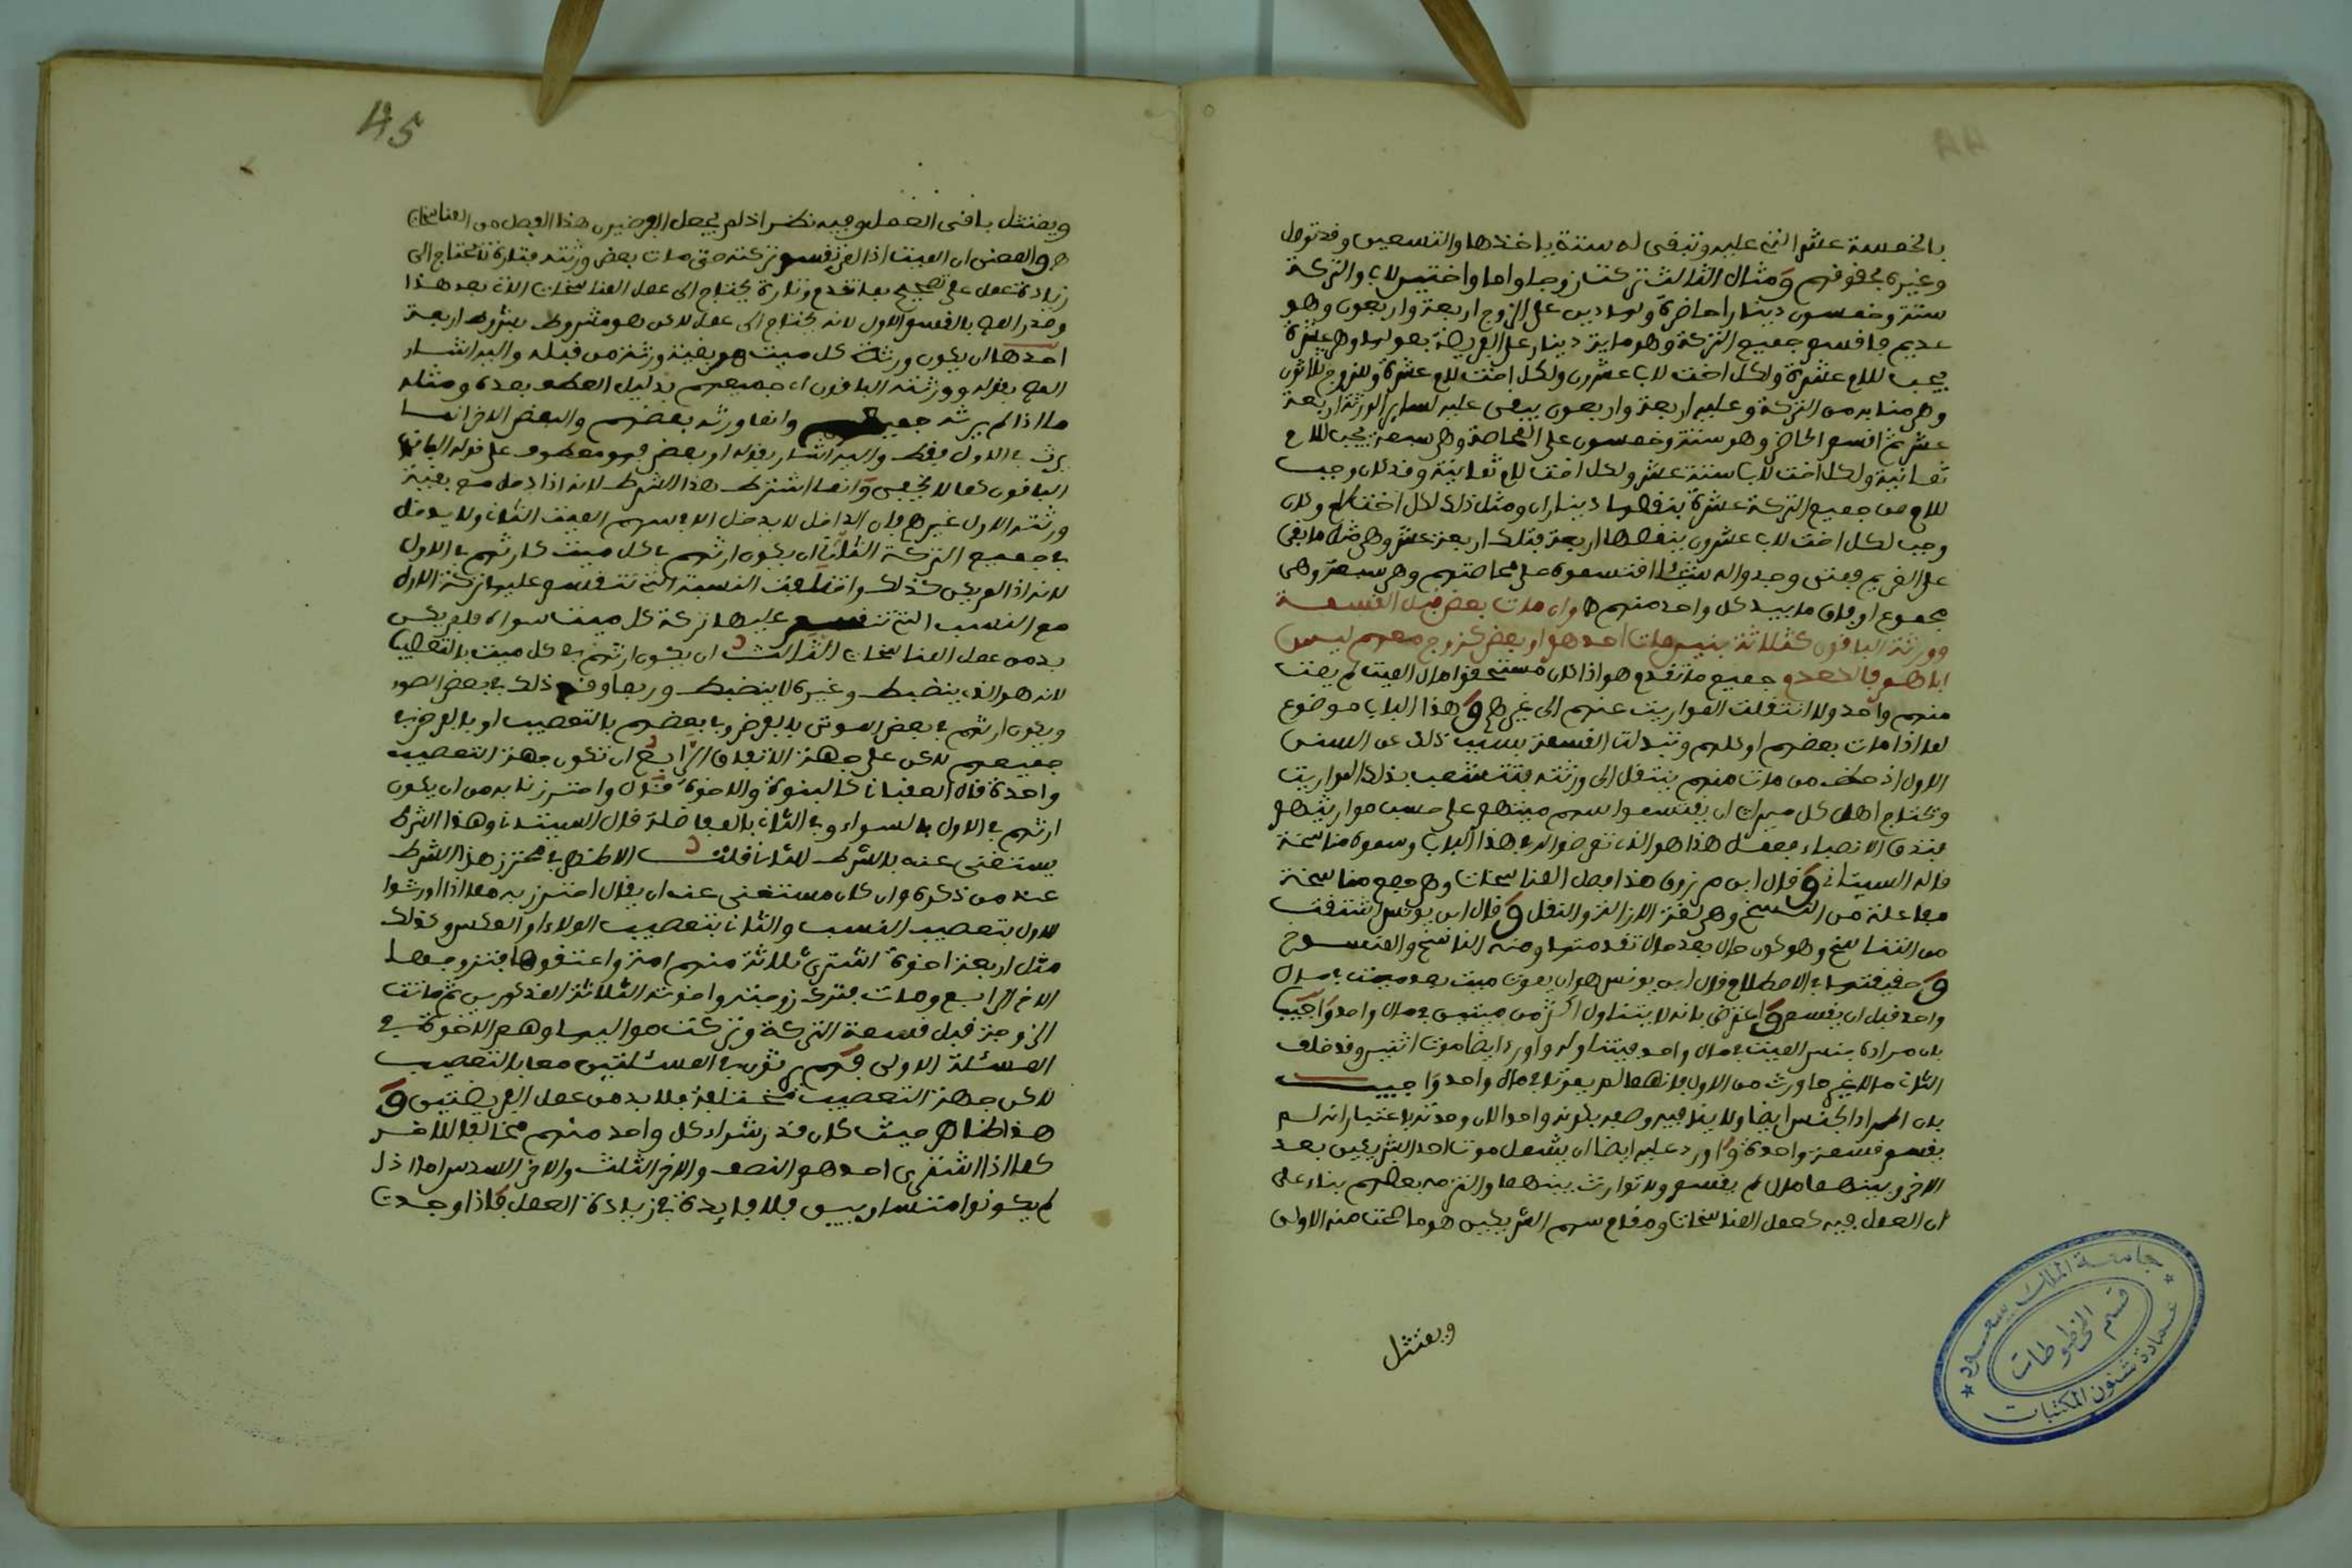 بالخمسة عشر التي عليه وتبقى له ستة ياخذها والتسعين وقد توصل
وغيره بحقوقهم ومثال الثالث تركت زوجا واما واختين لاب والتركة
ستة وخمسون دينارا حاضرة ولها دين على الزوج اربعة واربعون وهو
عديم فاقسم جميع التركة وهو ماية دينار على الفريضة بعولها وهي عشرة
يجب للام عشرة ولكل اخت لاب عشرون ولكل اخت للام عشرة وللزوج ثلاثون
وهي منابه من التركة وعليه اربعة واربعون يبقى عليه لساير الورثة اربعة
عشر ثم اقسم الحاضر وهو ستة وخمسون على المحاصة وهي سبعة يجب للام
ثمانية ولكل اخت لاب ستة عشر ولكل اخت للام ثمانية وقد كان وجب
للام من جميع التركة عشرة ينقصها ديناران ومثل ذلك لكل اخت لام وكان
وجب لكل اخت لاب عشرون ينقصها اربعة فتلك اربعة عشر وهي مثل ما بقي
على الغريم فمتى وجدوا له شيئا اقتسموه على محاصتهم وهي سبعة وهي
مجموع اوفاق ما بيد كل واحد منهم وان مات بعض قبل القسمة
وورثه الباقون كثلاثة بنين مات احدهم او بعض كزوج معهم ليس
اباهم فكالعدم جميع ما تقدم هو اذا كان مستحقوا مال الميت لم يمت
منهم واحد ولا انتقلت المواريث عنهم الى غيرهم وهذا الباب موضوع
لما اذا مات بعضهم او كلهم وتبدلت القسمة بسبب ذلك عن السنن
الاول اذ حظ من مات منهم ينتقل الى ورثته فتتشعب بذلك المواريث
ويحتاج اهل كل ميراث ان يقتسموا سهم ميتهم على حسب مواريثهم
فتدق الانصباء فعمل هذا هو الذي تعرضوا له في هذا الباب وسموه مناسخة
قاله السيتاني وقال ابن مرزوق هذا فصل المناسخات وهي جمع مناسخة
مفاعلة من النسخ وهي لغة الازالة والنقل وقال ابن يونس اشتقت
من التناسخ وهو كون حال بعد حال تقدمتها ومنه الناسخ والمنسوخ
وحقيقتها في الاصطلاح قال ابن يونس هو ان يموت ميت بعد ميت في مال
واحد قبل ان يقسم واعترض بانه لا يتناول اكثر من ميتين في مال واحد واجيب
بان مراده جنس الميت في مال واحد فيتناوله واورد ايضا موت اثنين وقد خلف
الثاني مالا غير ما ورث من الاول فانهما لم يموتا في مال واحد واجيب
بان المراد الجنس ايضا ولا ينافيه وصفه بكونه واحدا لان وحدته باعتبار انه لم
يقسم قسمة واحدة واورد عليه ايضا ان يشمل موت احد الشريكين بعد
الاخر وبينهما مال لم يقسم ولا توارث بينهما والتزمه بعضهم بناء على
ان العمل فيه كعمل المناسخات ومقام سهم الشريكين هو ما صحت منه الاولى
ويمتثل
جامعة الملك سعود
قسم المخطوطات
عمادة شئون المكتبات
45
ويمتثل باقي العمل وفيه نظر اذ لم يجعل الفرضيون هذا الفصل من المناسخات
والمعنى ان الميت اذا لم تقسم تركته حتى مات بعض ورثته فتارة لا يحتاج الى
زيادة عمل على تصحيح ما تقدم وتارة يحتاج الى عمل المناسخات الاتي بعد هذا
وصدر المص بالقسم الاول لانه لا يحتاج الى عمل لاكن هو مشروط بشروط اربعة
احدها ان يكون ورثة كل ميت هم بقية ورثة من قبله واليه اشار
المص بقوله وورثه الباقون اي جميعهم بدليل العطف بعده ومثله
ما اذا لم يرثه جميعهم وانما ورثه بعضهم والبعض الاخر انما
يرث في الاول فقط واليه اشار بقوله او بعض فهو معطوف على قوله الباقون
الباقون كما لا يخفى وانما اشترط هذا الشرط لانه اذا دخل مع بقية
ورثة الاول غيرهم فان الداخل لا يدخل الا في سهم الميت الثاني ولا يدخل
في جميع التركة الثاني ان يكون ارثهم في كل ميت كارثهم في الاول
لانه اذا لم يكن كذلك واختلفت النسبة التي تنقسم عليها تركة الاول
مع النسب التي تنقسم عليها تركة كل ميت سواه فلم يكن
بد من عمل المناسخات الثالث ان يكون ارثهم في كل ميت بالتعصيب
لانه هو الذي ينضبط وغيره لا ينضبط وربما وقع ذلك في بعض الصور
ويكون ارثهم في بعض الموتى بالفرض وبعضهم بالتعصيب او بالفرض في
جميعهم لاكن على جهة الاتفاق الرابع ان تكون جهة التعصيب
واحدة قال العقباني كالبنوة والاخوة قال واحترزنا به من ان يكون
ارثهم في الاول بالسواء وفي الثاني بالمفاضلة قال السيتاني وهذا الشرط
يستغنى عنه بالشرط الثاني قلت الاظهر في محترز هذا الشرط
عند من ذكره وان كان مستغنى عنه ان يقال احترز به مما اذا ورثوا
الاول بتعصيب النسب والثاني بتعصيب الولاء او العكس وذلك
مثل اربعة اخوة اشترى ثلاثة منهم امة واعتقوها فتزوجها
الاخ الرابع ومات فترك زوجته واخوته الثلاثة المذكورين ثم ماتت
الزوجة قبل قسمة التركة وتركت مواليها وهم الاخوة في
المسئلة الاولى فهم يرثون في المسئلتين معا بالتعصيب
لاكن جهة التعصيب مختلفة فلا بد من عمل الفريضتين و
هذا ظاهر حيث كان قدر شراء كل واحد منهم مخالفا للاخر
كما اذا اشترى احدهم النصف والاخر الثلث والاخر السدس اما اذا
لم يكونوا متساويين فلا فايدة في زيادة العمل فاذا وجدت